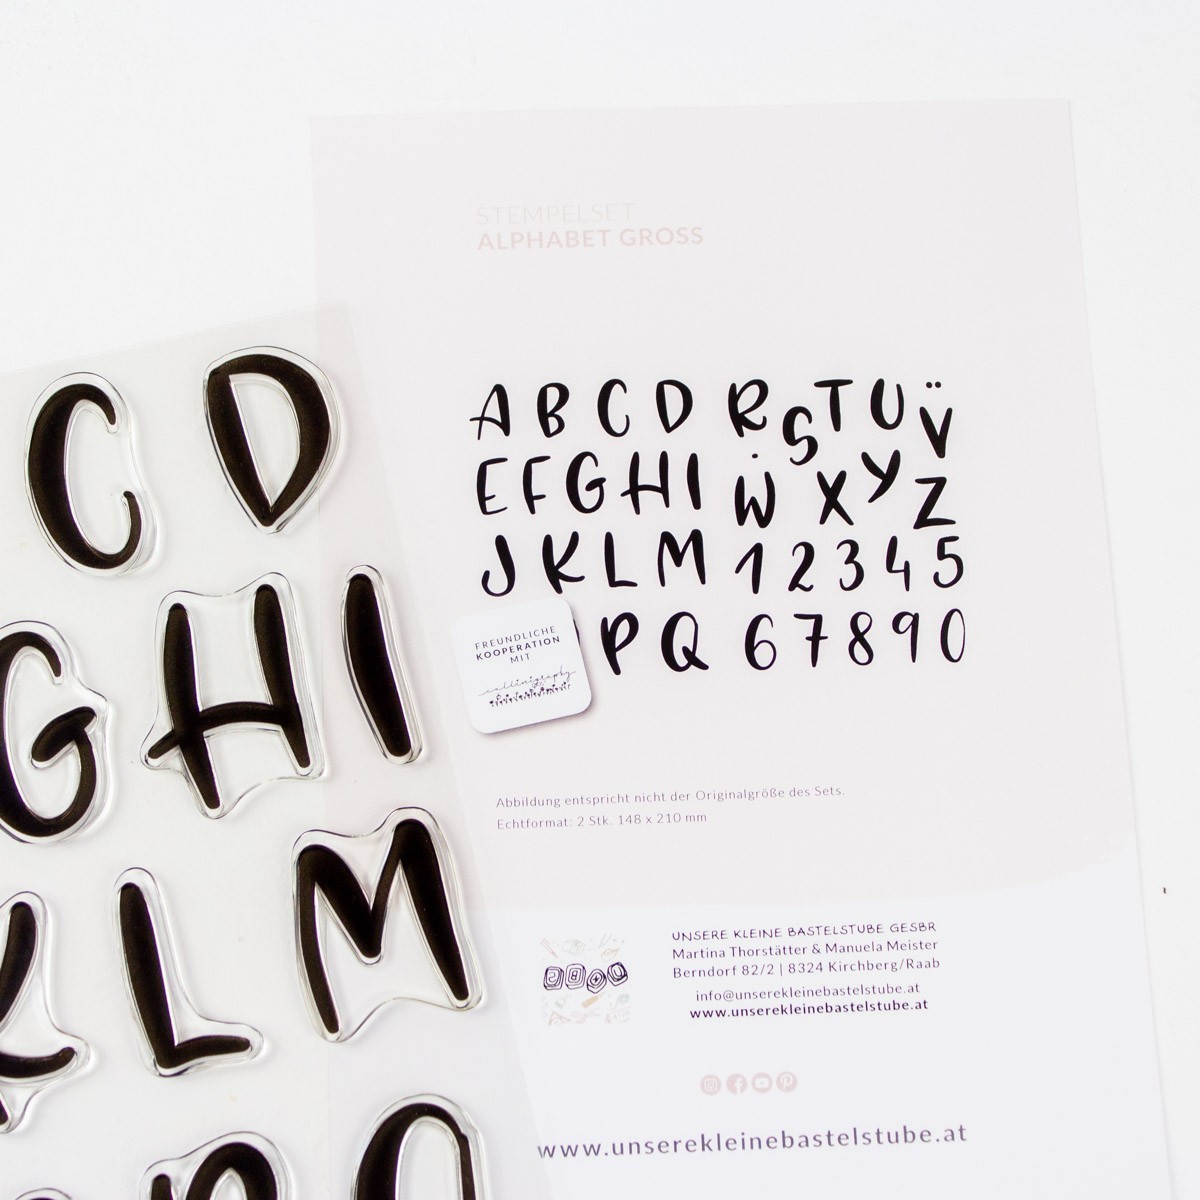 STEMPELSET
ALPHABET GROSS
A B C D R S T U V
E F G H I W X Y Z
J K L M 1 2 3 4 5
P Q 6 7 8 9 0
FREUNDLICHE
KOOPERATION
MIT
Abbildung entspricht nicht der Originalgröße des Sets.
Echtformat: 2 Stk. 148 x 210 mm
UNSERE KLEINE BASTELSTUBE GESBR
Martina Thorstätter & Manuela Meister
Berndorf 82/2 | 8324 Kirchberg/Raab
info@unserekleinebastelstube.at
www.unserekleinebastelstube.at
www.unserekleinebastelstube.at
C D
G H I
K L M
P Q